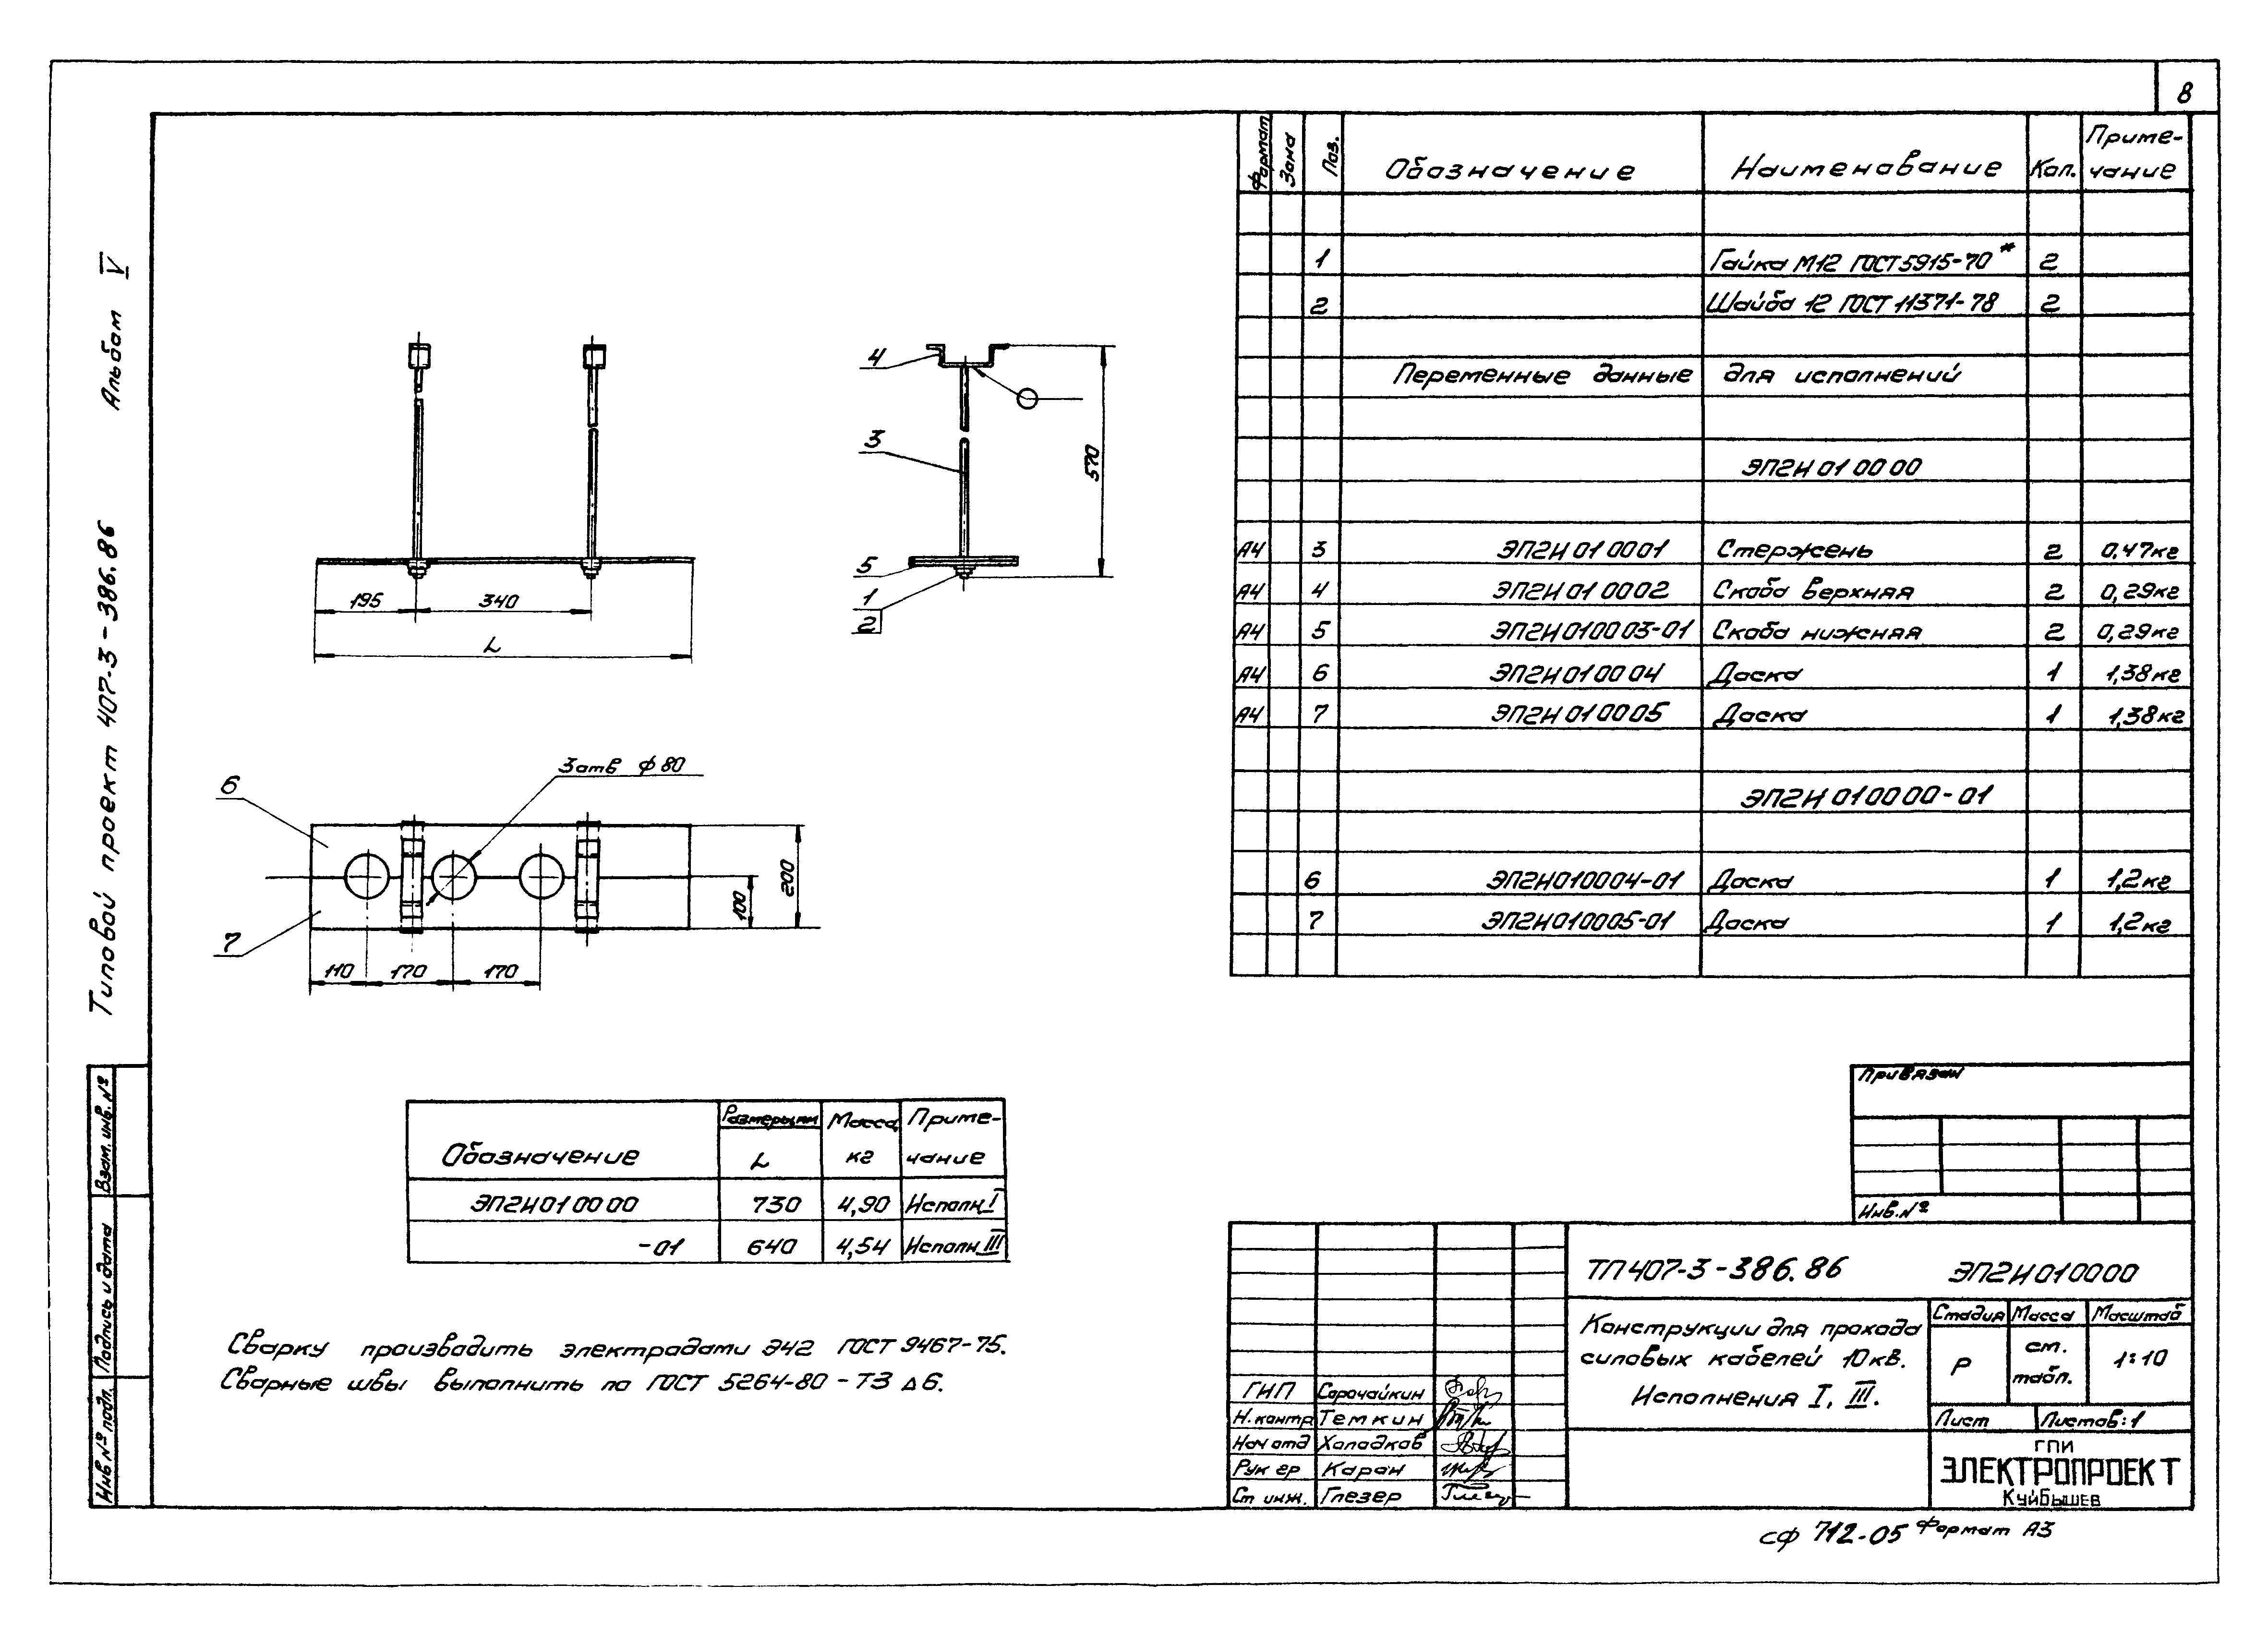 8
Типовой проект 407-3-386.86 Альбом V
Формат Зона Поз. Обозначение Наименование Кол. Приме-
чание
1 Гайка М12 ГОСТ 5915-70* 2
2 Шайба 12 ГОСТ 11371-78 2
Переменные данные для исполнений
ЭП2И010000
А4 3 ЭП2И010001 Стержень 2 0,47кг
А4 4 ЭП2И010002 Скоба верхняя 2 0,29кг
А4 5 ЭП2И010003-01 Скоба нижняя 2 0,29кг
А4 6 ЭП2И010004 Доска 1 1,38кг
А4 7 ЭП2И010005 Доска 1 1,38кг
ЭП2И010000-01
6 ЭП2И010004-01 Доска 1 1,2кг
7 ЭП2И010005-01 Доска 1 1,2кг
195 340
L
4
3
5
1
2
570
6
7
3 отв ф80
110 170 170
100
200
Обозначение Размеры,мм Масса Приме-
L кг чание
ЭП2И010000 730 4,90 Исполн.I
-01 640 4,54 Исполн.III
Сварку производить электродами Э42 ГОСТ 9467-75.
Сварные швы выполнить по ГОСТ 5264-80-Т3 Δ6.
Взам. инв. №
Подпись и дата
Инв № подл.
Привязан
Инв.№
ТП407-3-386.86 ЭП2И010000
Конструкции для прохода
силовых кабелей 10кв.
Исполнения I, III.
Стадия Масса Масштаб
Р см.
табл. 1:10
Лист Листов:1
ГПИ
ЭЛЕКТРОПРОЕКТ
Куйбышев
ГИП Сорочайкин
Н.контр Темкин
Нач отд Холодков
Рук гр Каран
Ст инж. Глезер
сф 712-05 Формат А3